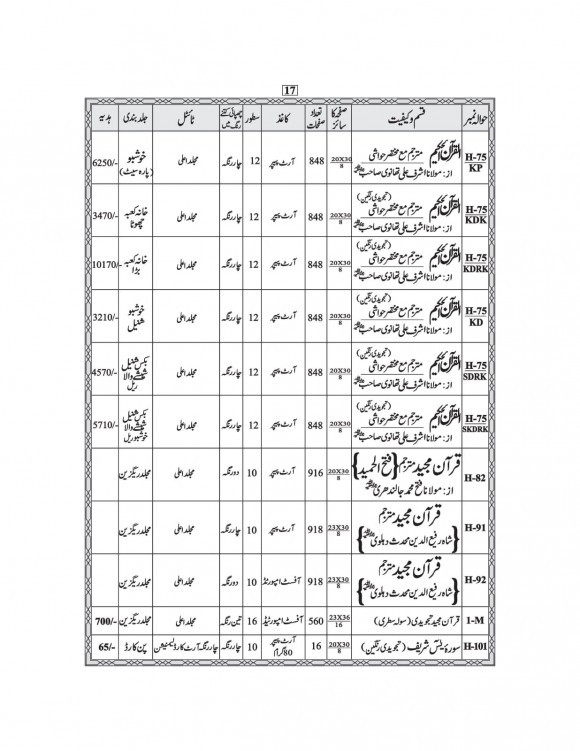 17
حوالہ نمبر قسم و کیفیت صفحہ کا سائز تعداد صفحات کاغذ سطور چھپائی کتنے رنگ میں ٹائٹل جلد بندی ہدیہ
H-75 KP القرآن الحکیم مترجم مع مختصر حواشی 20X30/8 848 آرٹ پیپر 12 چار رنگہ مجلد اعلیٰ خوشبو (پارہ سیٹ) 6250/-
از: مولانا اشرف علی تھانوی صاحب
H-75 KDK القرآن الحکیم (تجویدی رنگین) مترجم مع مختصر حواشی 20X30/8 848 آرٹ پیپر 12 چار رنگہ مجلد اعلیٰ خانہ کعبہ چھوٹا 3470/-
از: مولانا اشرف علی تھانوی صاحب
H-75 KDRK القرآن الحکیم (تجویدی رنگین) مترجم مع مختصر حواشی 20X30/8 848 آرٹ پیپر 12 چار رنگہ مجلد اعلیٰ خانہ کعبہ بڑا 10170/-
از: مولانا اشرف علی تھانوی صاحب
H-75 KD القرآن الحکیم (تجویدی رنگین) مترجم مع مختصر حواشی 20X30/8 848 آرٹ پیپر 12 چار رنگہ مجلد اعلیٰ خوشبو شنیل 3210/-
از: مولانا اشرف علی تھانوی صاحب
H-75 SDRK القرآن الحکیم (تجویدی رنگین) مترجم مع مختصر حواشی 20X30/8 848 آرٹ پیپر 12 چار رنگہ مجلد اعلیٰ بکس شنیل شیشے والا ریل 4570/-
از: مولانا اشرف علی تھانوی صاحب
H-75 SKDRK القرآن الحکیم (تجویدی رنگین) مترجم مع مختصر حواشی 20X30/8 848 آرٹ پیپر 12 چار رنگہ مجلد اعلیٰ بکس شنیل شیشے والا خوشبو ریل 5710/-
از: مولانا اشرف علی تھانوی صاحب
H-82 قرآن مجید مترجم {فتح الحمید} 20X30/8 916 آرٹ پیپر 10 دو رنگہ مجلد اعلیٰ مجلد ریگزین
از: مولانا فتح محمد جالندھری
H-91 قرآن مجید مترجم 23X30/8 918 آرٹ پیپر 10 چار رنگہ مجلد اعلیٰ مجلد ریگزین
{شاہ رفیع الدین محدث دہلوی}
H-92 قرآن مجید مترجم 23X30/8 918 آفسٹ امپورٹڈ 10 دو رنگہ مجلد اعلیٰ مجلد ریگزین
{شاہ رفیع الدین محدث دہلوی}
1-M قرآن مجید تجویدی (سولہ سطری) 23X36/16 560 آفسٹ امپورٹیڈ 16 تین رنگہ مجلد اعلیٰ مجلد ریگزین 700/-
H-101 سورۂ یٰسٓ شریف (تجویدی رنگین) 20X30/8 16 آرٹ پیپر 80 گرام 10 چار رنگہ چار رنگہ آرٹ کارڈ لیمینیشن پن کارڈ 65/-